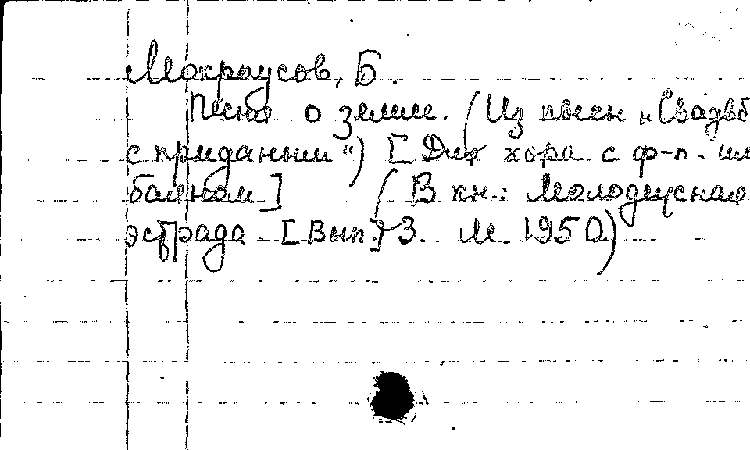 Мокроусов, Б.
Песня о земле. (Из пьесы „Свадьб
с приданым“) [Для хора с ф-п. ил
баяном] (В кн.: Молодежная
эстрада [Вып.] 3. М. 1950)